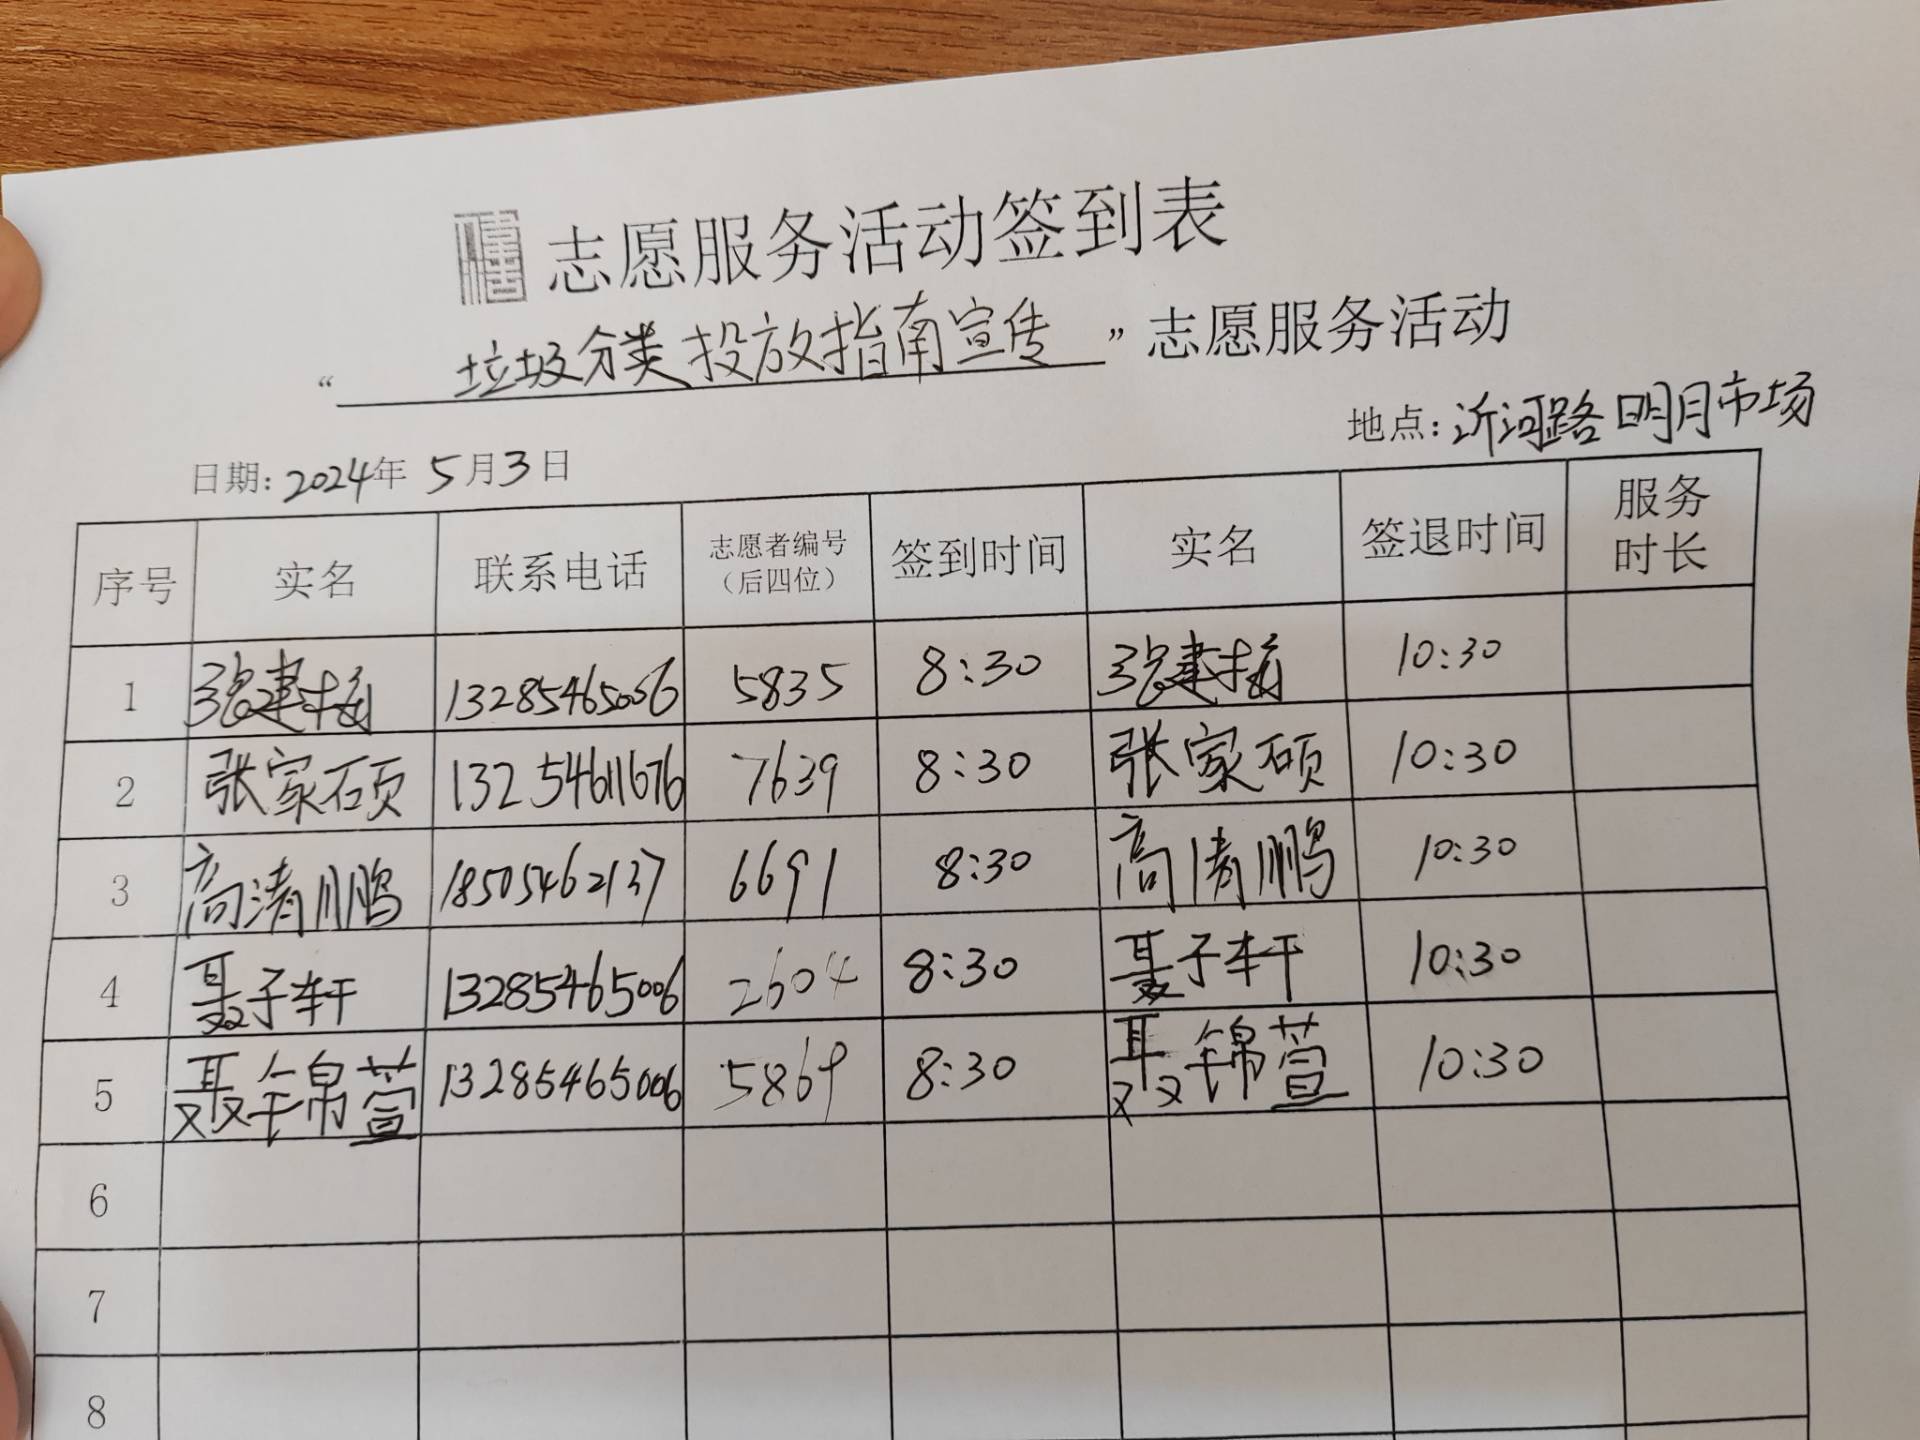 志愿服务活动签到表
“垃圾分类投放指南宣传”志愿服务活动
地点:沂河路明月市场
日期:2024年5月3日
序号 实名 联系电话 志愿者编号（后四位） 签到时间 实名 签退时间 服务时长
1 张建梅 13285465006 5835 8:30 张建梅 10:30
2 张家硕 13254611676 7639 8:30 张家硕 10:30
3 高清鹏 18505462137 6691 8:30 高清鹏 10:30
4 聂子轩 13285465006 2604 8:30 聂子轩 10:30
5 聂锦萱 13285465006 5869 8:30 聂锦萱 10:30
6
7
8